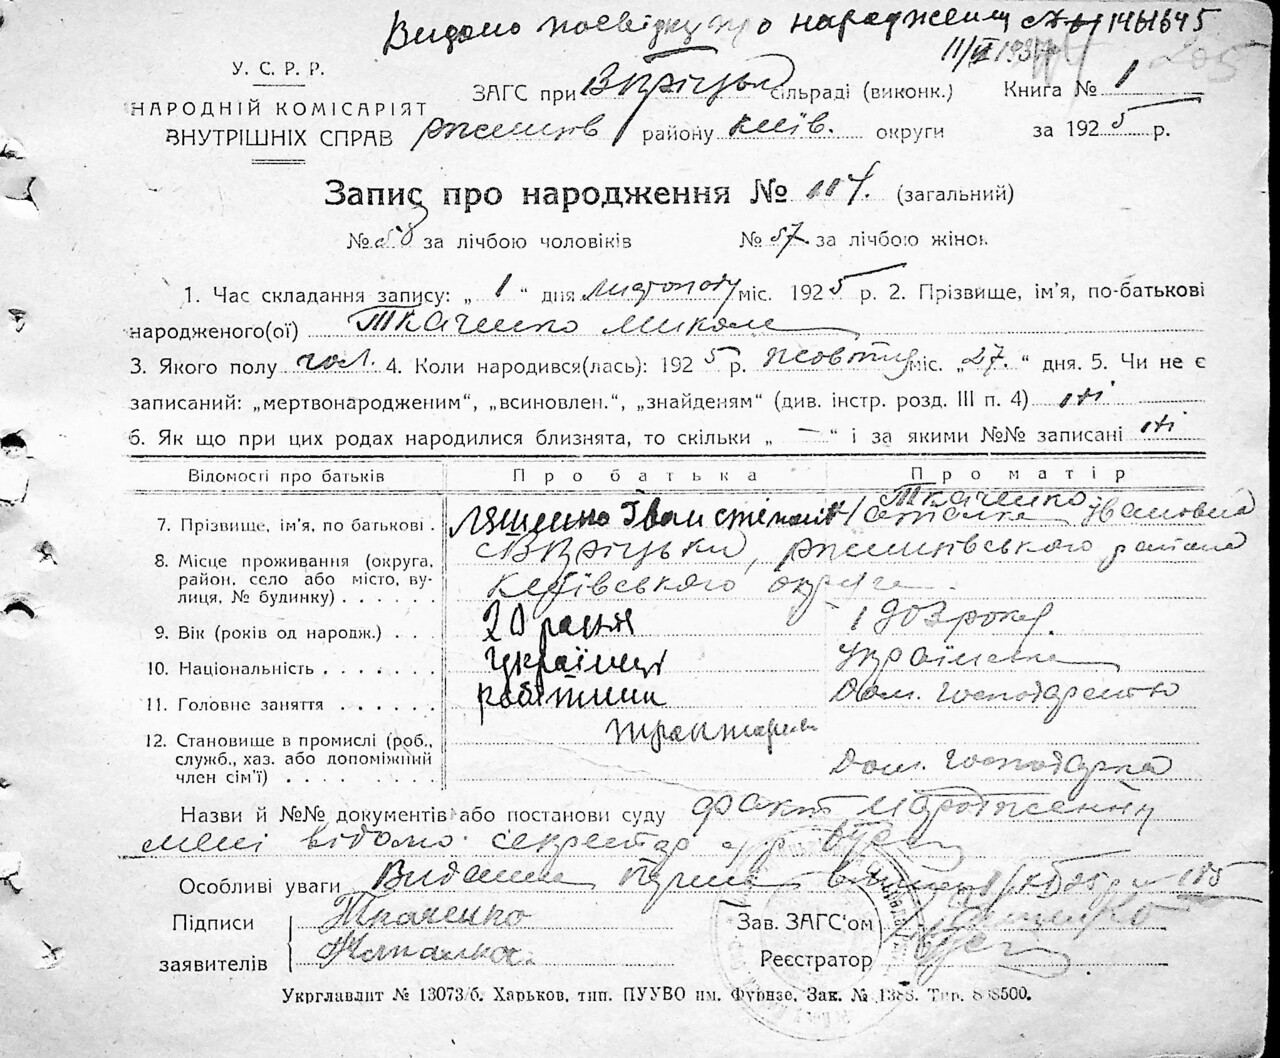 Видано посвідку про народження № 141645
11/VI 1937
205
У. С. Р. Р.
НАРОДНІЙ КОМІСАРІЯТ
ВНУТРІШНІХ СПРАВ
ЗАГС при сільраді (виконк.) Книга № 1
району Київ. округи за 1925 р.
Запис про народження № 114. (загальний)
№ 58 за лічбою чоловіків № 57. за лічбою жінок
1. Час складання запису: „ 1 “ дня листопаду міс. 1925 р. 2. Прізвище, ім'я, по-батькові
народженого(ої) Ткаченко Микола
3. Якого полу чол. 4. Коли народився(лась): 1925 р. жовтня міс. „ 27. “ дня. 5. Чи не є
записаний: „мертвонародженим“, „всиновлен.“, „знайденям“ (див. інстр. розд. III п. 4) ні
6. Як що при цих родах народилися близнята, то скільки „ — “ і за якими №№ записані ні
Відомості про батьків Про батька Про матір
7. Прізвище, ім'я, по батькові . Ляшенко Іван Ткаченко Наталка Івановна
8. Місце проживання (округа,
район, село або місто, ву-
лиця, № будинку) . . . . . . Київського округа
9. Вік (років од народж.) . . . 20 1903 року.
10. Національність . . . . . . . українці Українка
11. Головне заняття . . . . . . робітник Дом. господарство
12. Становище в промислі (роб.,
служб., хаз. або допоміжний
член сім'ї) . . . . . . . . Дом. господарка
Назви й №№ документів або постанови суду факт народження
мені відомо секретар
Особливі уваги Видана
Підписи Ткаченко Зав. ЗАГС'ом
заявителів Наталка. Реєстратор
Укрглавлит № 13073/б. Харьков, тип. ПУУВО им. Фрунзе, Зак. № 1388. Тир. 808500.